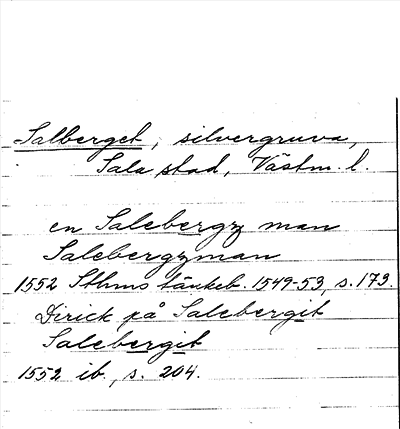 Salberget, silvergruva,
Sala stad, Västm. l.
en Salebergz man
Salebergzman
1552 Sthms tänkeb. 1549-53, s. 173.
Dirick på Salebergit
Salebergit
1552 ib., s. 204.